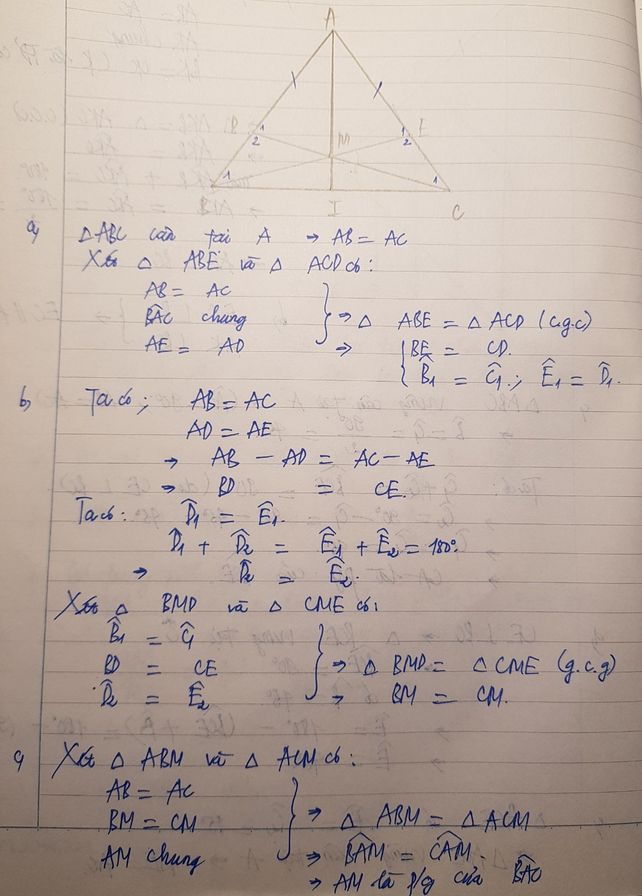 A
D
1
2
1
E
2
M
1
1
B
I
C
a,
△ABC cân tại A → AB = AC
Xét △ ABE và △ ACD có:
AB = AC
B̂AC chung ⇒ △ ABE = △ ACD (c.g.c)
AE = AD ⇒ BE = CD.
B̂1 = Ĉ1; Ê1 = D̂1.
b, Ta có; AB = AC
AD = AE
→ AB - AD = AC - AE
→ BD = CE.
Ta có: D̂1 = Ê1.
D̂1 + D̂2 = Ê1 + Ê2 = 180°.
→ D̂2 = Ê2.
Xét △ BMD và △ CME có:
B̂1 = Ĉ1
BD = CE ⇒ △ BMD = △ CME (g.c.g)
D̂2 = Ê2 → BM = CM.
c, Xét △ ABM và △ ACM có:
AB = AC
BM = CM ⇒ △ ABM = △ ACM
AM chung ⇒ B̂AM = ĈAM.
→ AM là p/g của B̂AC